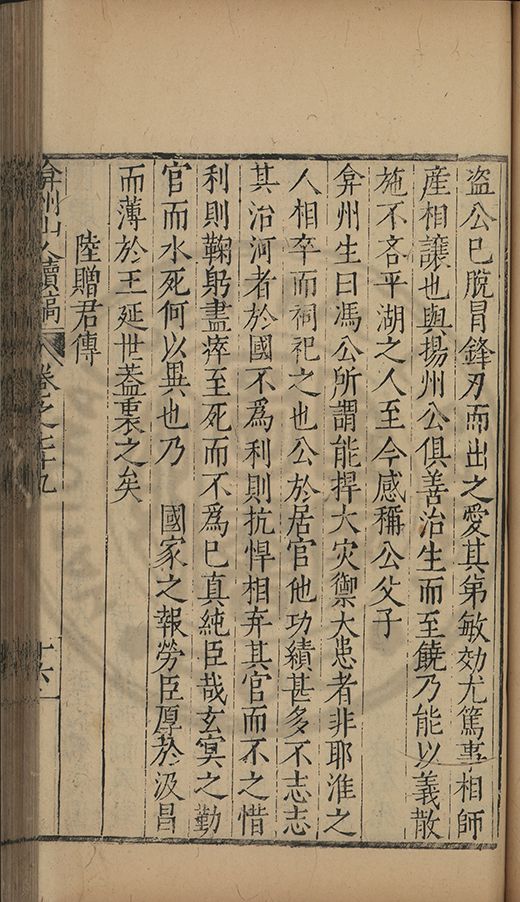 盗公已脫冒鋒刃而出之愛其弟敏効尤篤事相師
産相讓也與揚州公俱善治生而至饒乃能以義散
施不吝平湖之人至今感稱公父子
弇州生曰馮公所謂能捍大灾禦大患者非耶淮之
人相率而祠祀之也公於居官他功績甚多不志志
其治河者於國不爲利則抗悍相弃其官而不之惜
利則鞠躬盡瘁至死而不爲已真純臣哉玄冥之勤
官而水死何以異也乃　國家之報勞臣厚於汲昌
而薄於王延世葢褁之矣
陸贈君傳
弇州山人續稿　卷之七十九　十六